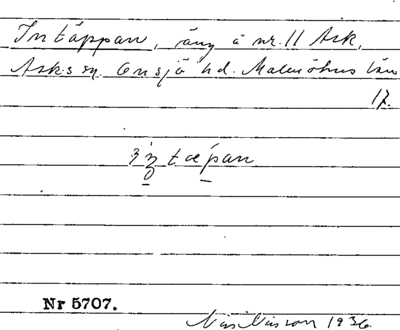 Intäppan, äng å nr. 11 Ask,
Asks sn. Onsjö hd. Malmöhus län
17.
Nr 5707.
Nils Nilsson 1936